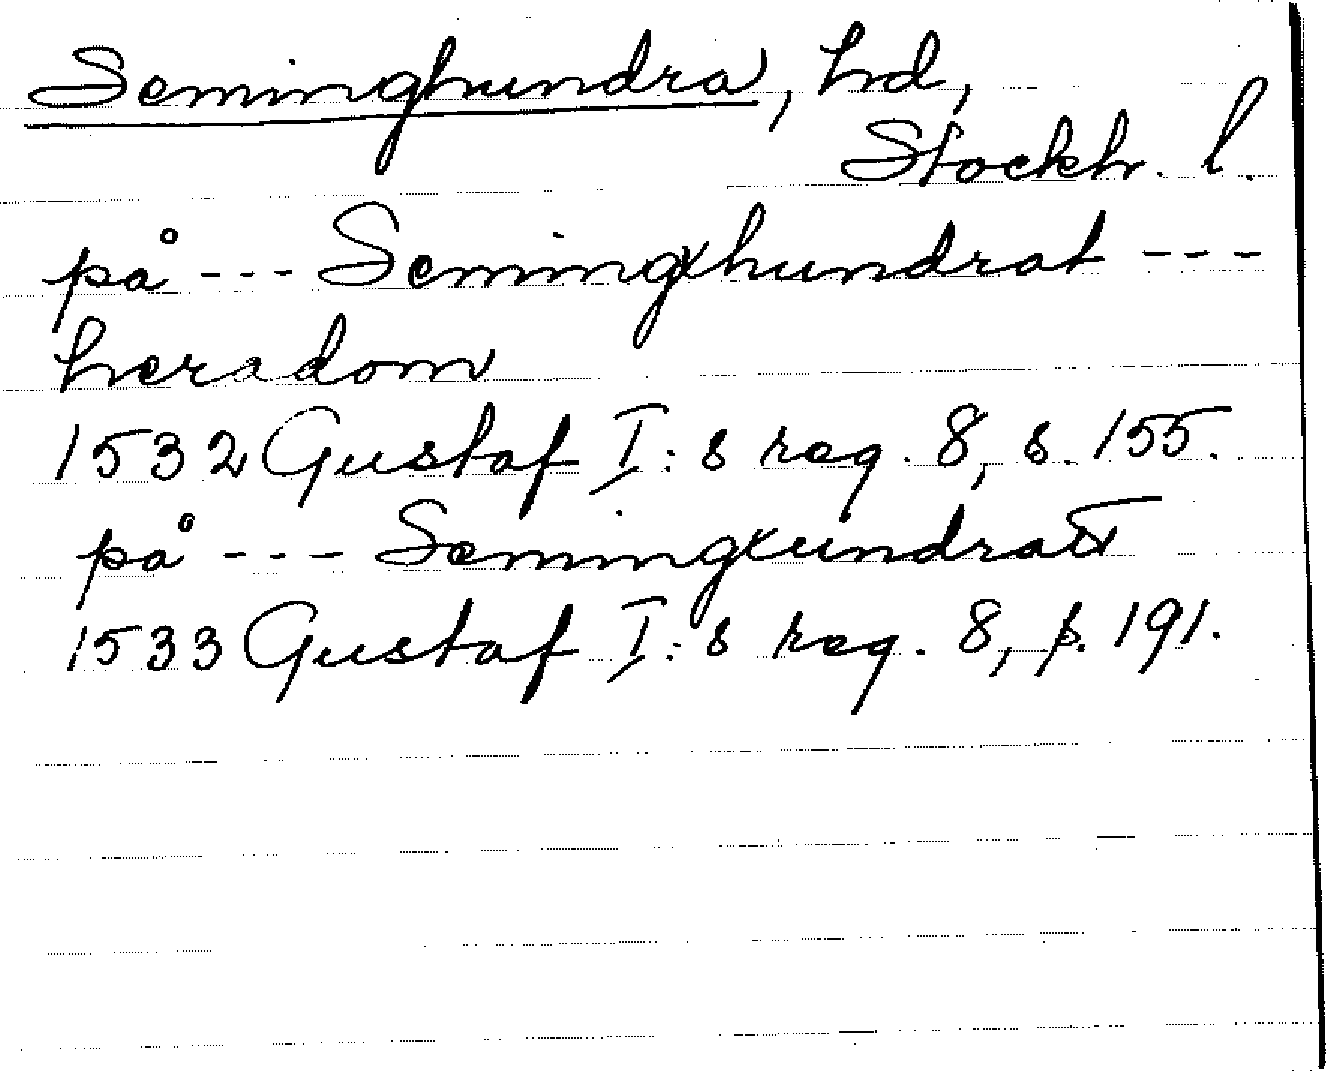 Seminghundra, hd,
Stockh. l.
på --- Semingxhundrat ---
heradom
1532 Gustaf I:s reg. 8, s. 155.
på --- Semingxundratt
1533 Gustaf I:s reg. 8, s. 191.